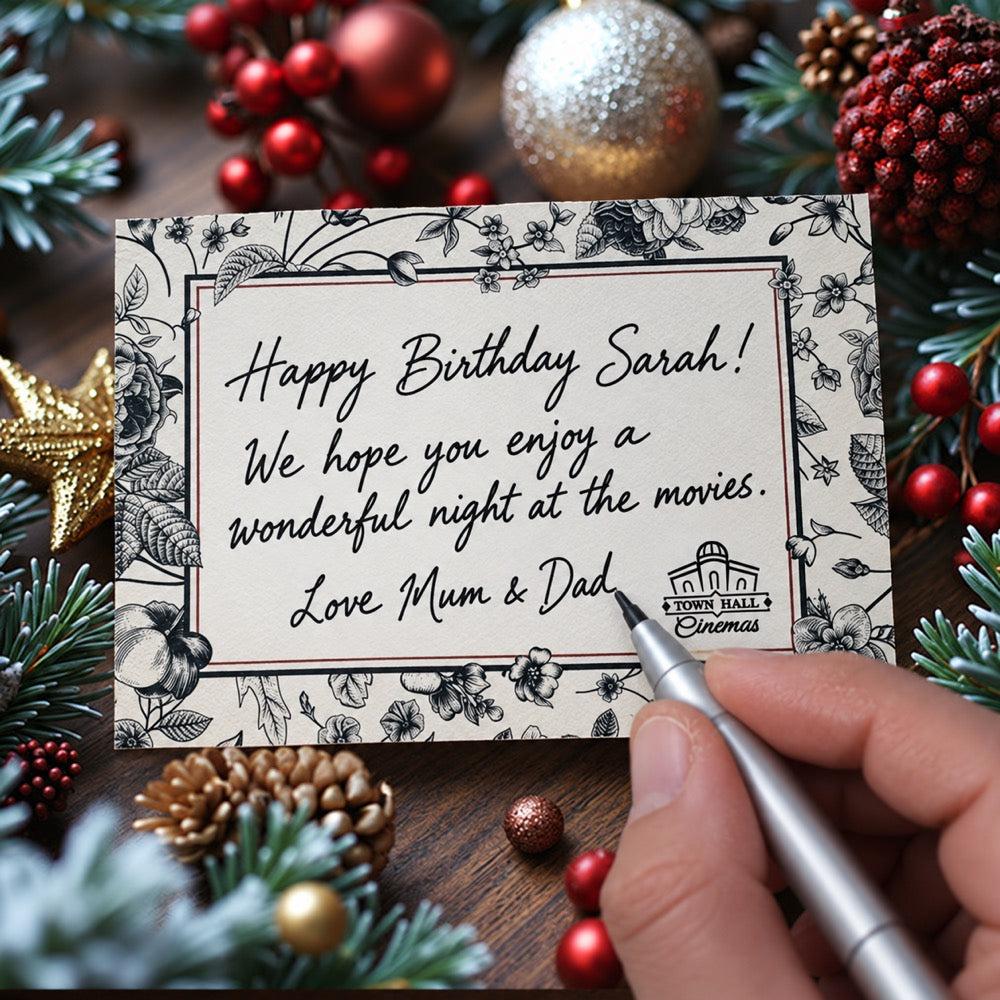 Happy Birthday Sarah!
We hope you enjoy a
wonderful night at the movies.
Love Mum & Dad
TOWN HALL
Cinemas